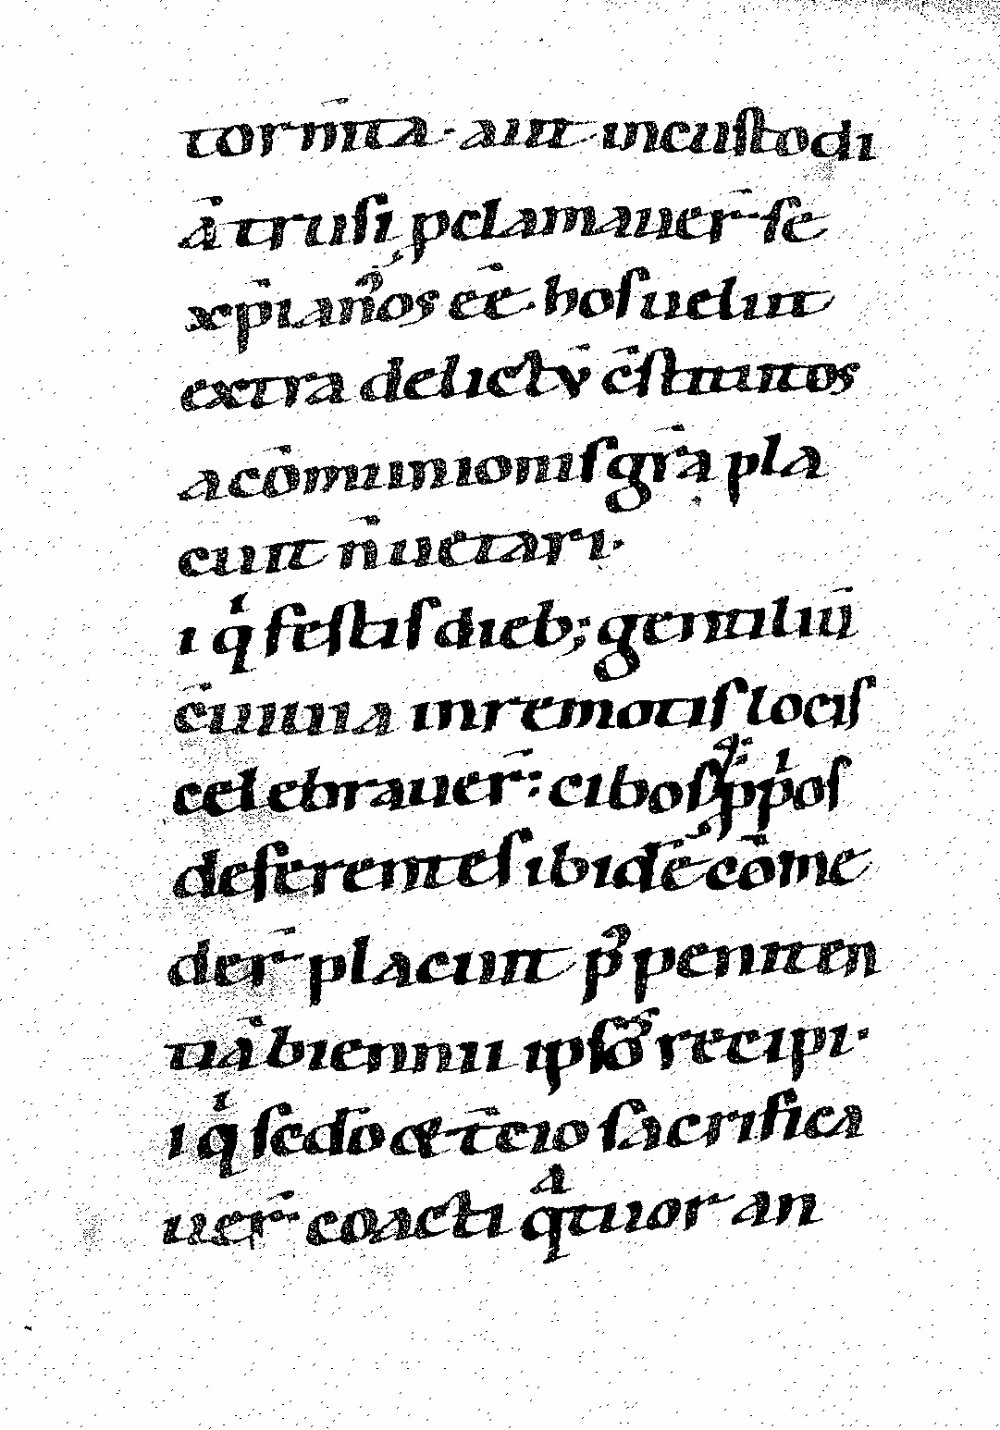 tormĩta· aut incustodi
ā trusi ꝓclamauer̄ se
xp̄ianos ēē· hos uelut
extra delictū c̄stitutos
acōmunionis gr̄a pla
cuit n̄ uetari·
i qͥ festis dieb; gentiliū
c̄uiuia inremotis locis
celebrauer̄: cibosq; ꝓpͥos
deferentes ibidē cōme
der̄ placuit pꝰ peniten
tiā biennii ipsos recipi·
i qͥ sedo & tcio sacrifica
uer̄ coacti qͣtuor an